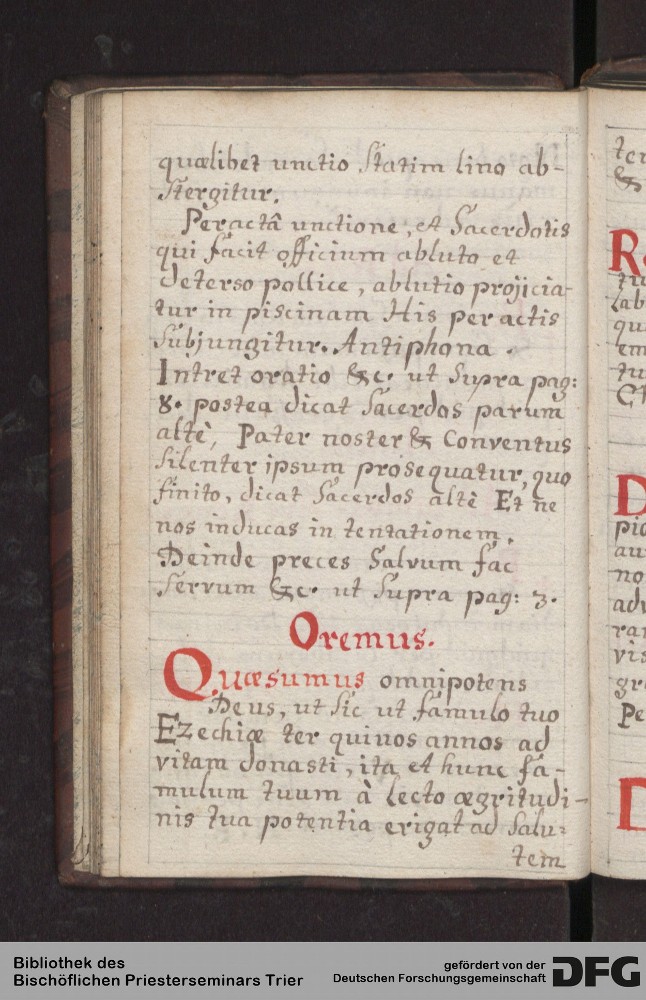 quælibet unctio statim lino ab-
stergitur.
Peractâ unctione, et Sacerdotis
qui facit officium abluto et
deterso pollice, ablutio projicia-
tur in piscinam His peractis
subjungitur. Antiphona.
Intret oratio &c. ut supra pag:
8. postea dicat Sacerdos parum
altè, Pater noster & Conventus
silenter ipsum prosequatur, quo
finito, dicat Sacerdos altè Et ne
nos inducas in tentationem.
Deinde preces Salvum fac
servum &c. ut supra pag: 3.
Oremus.
Quæsumus omnipotens
Deus, ut sic ut famulo tuo
Ezechiæ ter quinos annos ad
vitam donasti, ita et hunc fa-
mulum tuum à lecto ægritudi-
nis tua potentia erigat ad salu-
tem
Bibliothek des
Bischöflichen Priesterseminars Trier
gefördert von der
Deutschen Forschungsgemeinschaft
DFG